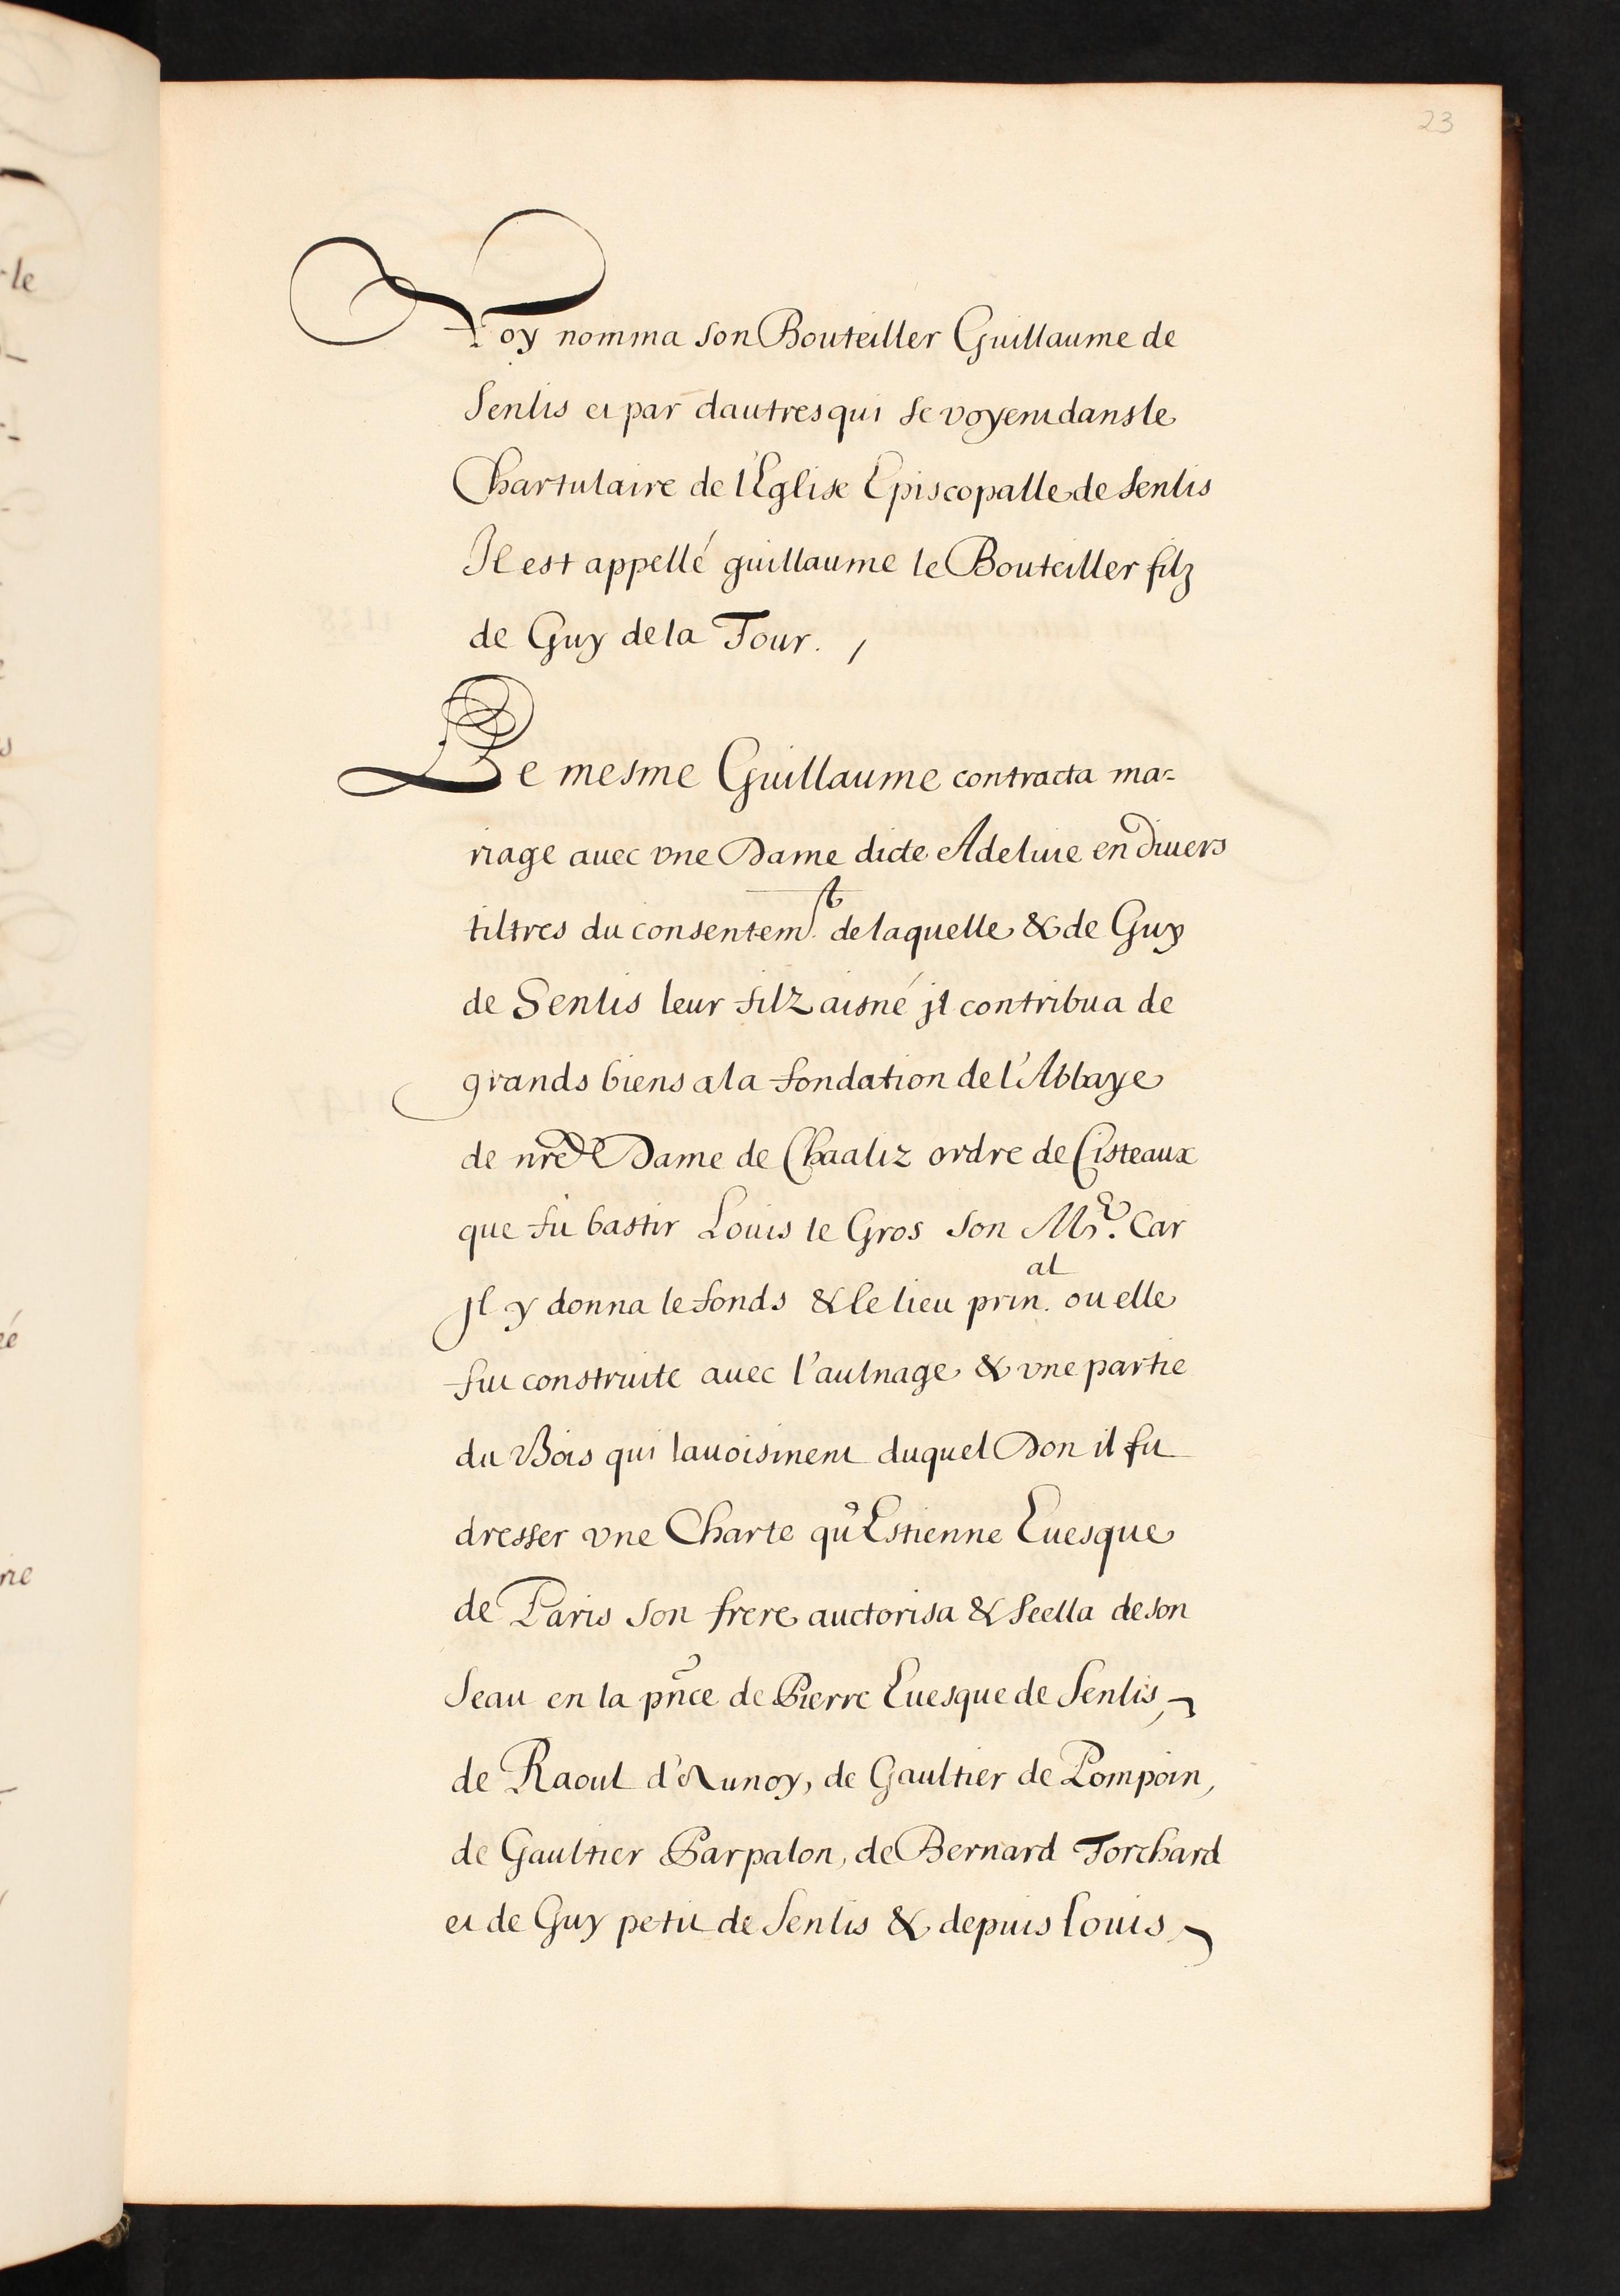 23
Roy nomma son Bouteiller Guillaume de
Senlis et par dautres qui se voyent dans le
Chartulaire de l'Eglise Episcopalle de Senlis
Il est appellé guillaume le Bouteiller filz
de Guy de la Tour. /
Le mesme Guillaume contracta ma=
riage auec vne Dame dicte Adeluie en diuers
tiltres du consentem.t de laquelle & de Guy
de Senlis leur filz aisné jl contribua de
grands biens a la fondation de l'Abbaye
de nre Dame de Chaaliz ordre de Cisteaux
que fit bastir Louis le Gros son Mre. Car
jl y donna le fonds & le lieu prin.al ou elle
fut construite auec l'aulnage & vne partie
du Bois qui lauoisinent duquel Don il fit
dresser vne Charte qu'Estienne Euesque
de Paris son frere auctorisa & seella de son
seau en la pñce de Pierre Euesque de Senlis,
de Raoul d'Aunoy, de Gaultier de Pompoin,
de Gaultier Parpalon, de Bernard Torchard
et de Guy petit de Senlis & depuis Louis